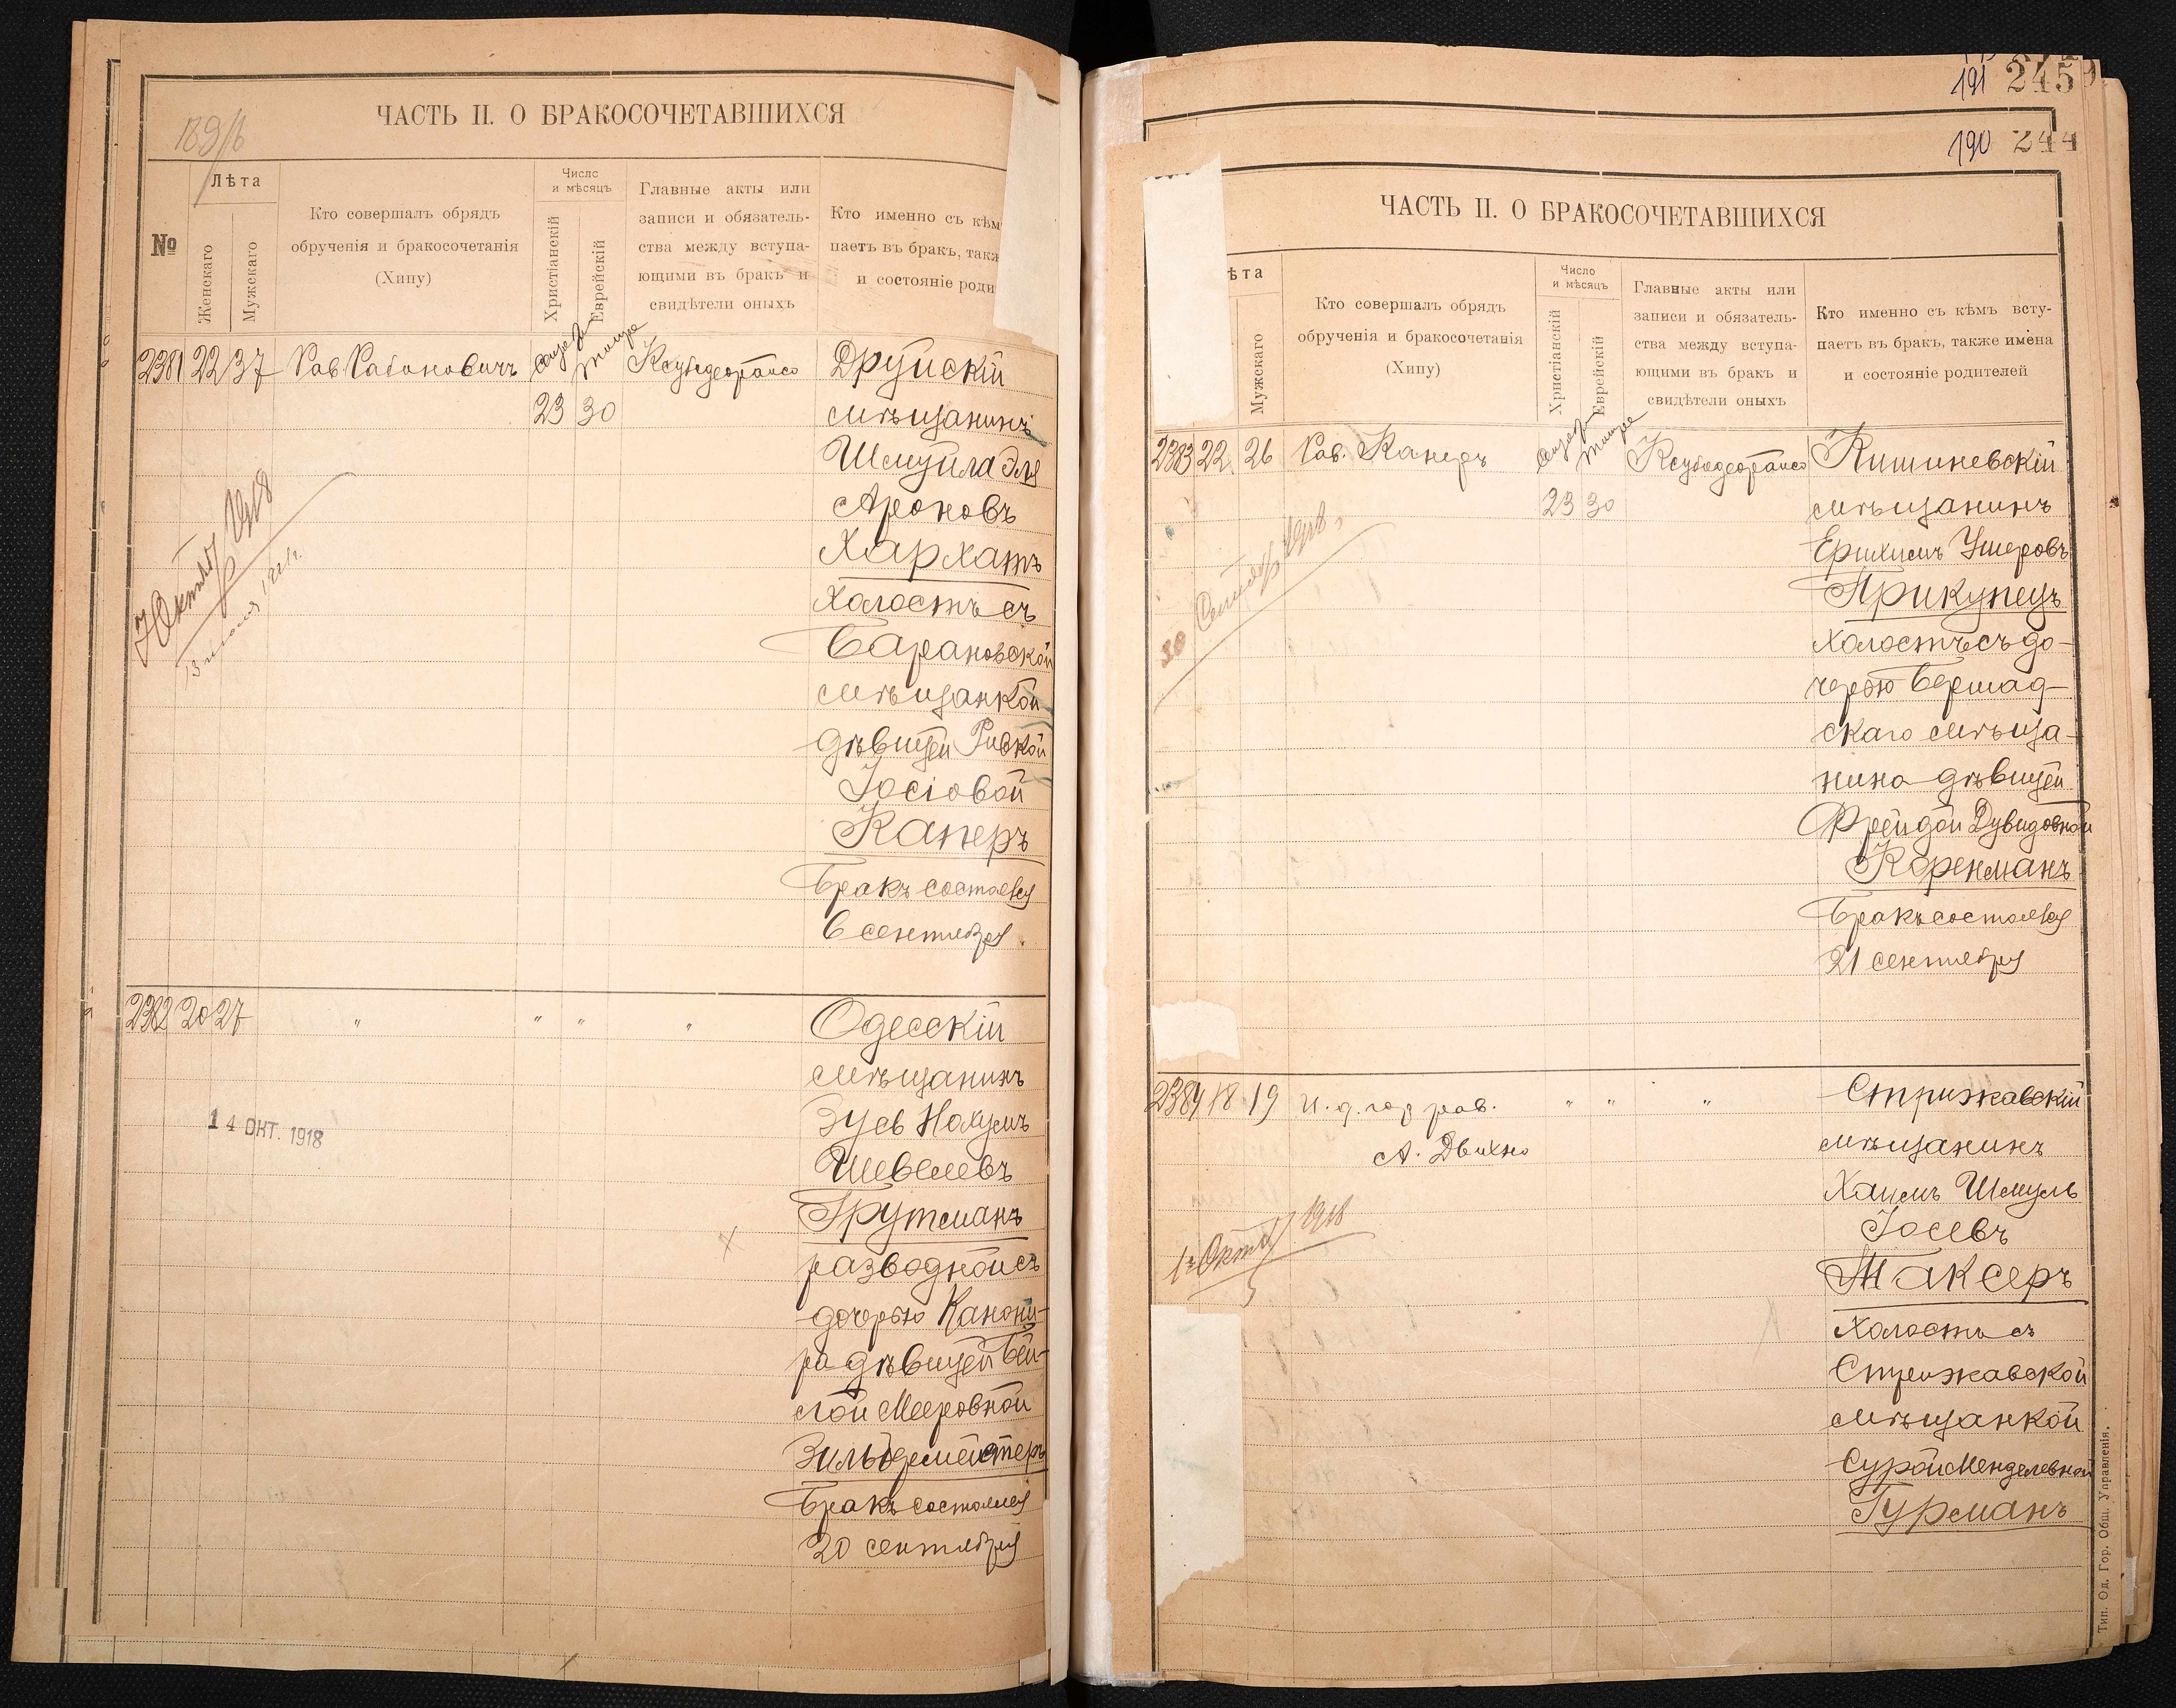 ЧАСТЬ II. О БРАКОСОЧЕТАВШИХСЯ
№
Лѣта
Женскаго
Мужскаго
Кто совершалъ обрядъ
обрученія и бракосочетанія
(Хипу)
Число
и мѣсяцъ
Христіанскій
Еврейскій
Главные акты или
записи и обязатель-
ства между вступа-
ющими въ бракъ и
свидѣтели оныхъ
Кто именно съ кѣм
паетъ въ бракъ, такж
и состояніе роди
2381 22 37 Рав Рабиновичъ
23 30
Друйскій
мѣщанинъ
Шмуйла Эля
Ароновъ
Хархатъ
холостъ съ
Барановской
мѣщанкой
дѣвицей Ривкой
Іосіовой
Каперъ
Бракъ состоялся
6 сентября.
7 Октяб 1918
2382 20 27 " " " "
Одесскій
мѣщанинъ
Зусь Нахумъ
Шевелевъ
Трутманъ
разводной съ
дочерью Канони-
ра дѣвицей Бей-
лой Мееровной
Зильбермейстеръ
Бракъ состоялся
20 сентября
14 ОКТ. 1918
191 245
190 244
ЧАСТЬ II. О БРАКОСОЧЕТАВШИХСЯ
ѣта
Мужскаго
Кто совершалъ обрядъ
обрученія и бракосочетанія
(Хипу)
Число
и мѣсяцъ
Христіанскій
Еврейскій
Главные акты или
записи и обязатель-
ства между вступа-
ющими въ бракъ и
свидѣтели оныхъ
Кто именно съ кѣмъ всту-
паетъ въ бракъ, также имёна
и состояніе родителей
2383 22 26 Рав.
23 30
Кишиневскій
мѣщанинъ
Ерихимъ Ушеровъ
Прикупецъ
холостъ съ до-
черью Бершад-
скаго мѣща-
нина дѣвицей
Фрейдой Дувидовной
Коренманъ
Бракъ состоялся
21 сентября
30 Сентяб 1918
2384 18 19 И. д. гор рав. " " "
А. Двихно
Стрижавскій
мѣщанинъ
Хаимъ Шмуль
Іосевъ
Таксеръ
холостъ съ
Стрижавской
мѣщанкой
Сурой Менделевной
Гурманъ
Октяб 1918
Тип. Од. Гор. Общ. Управленія.